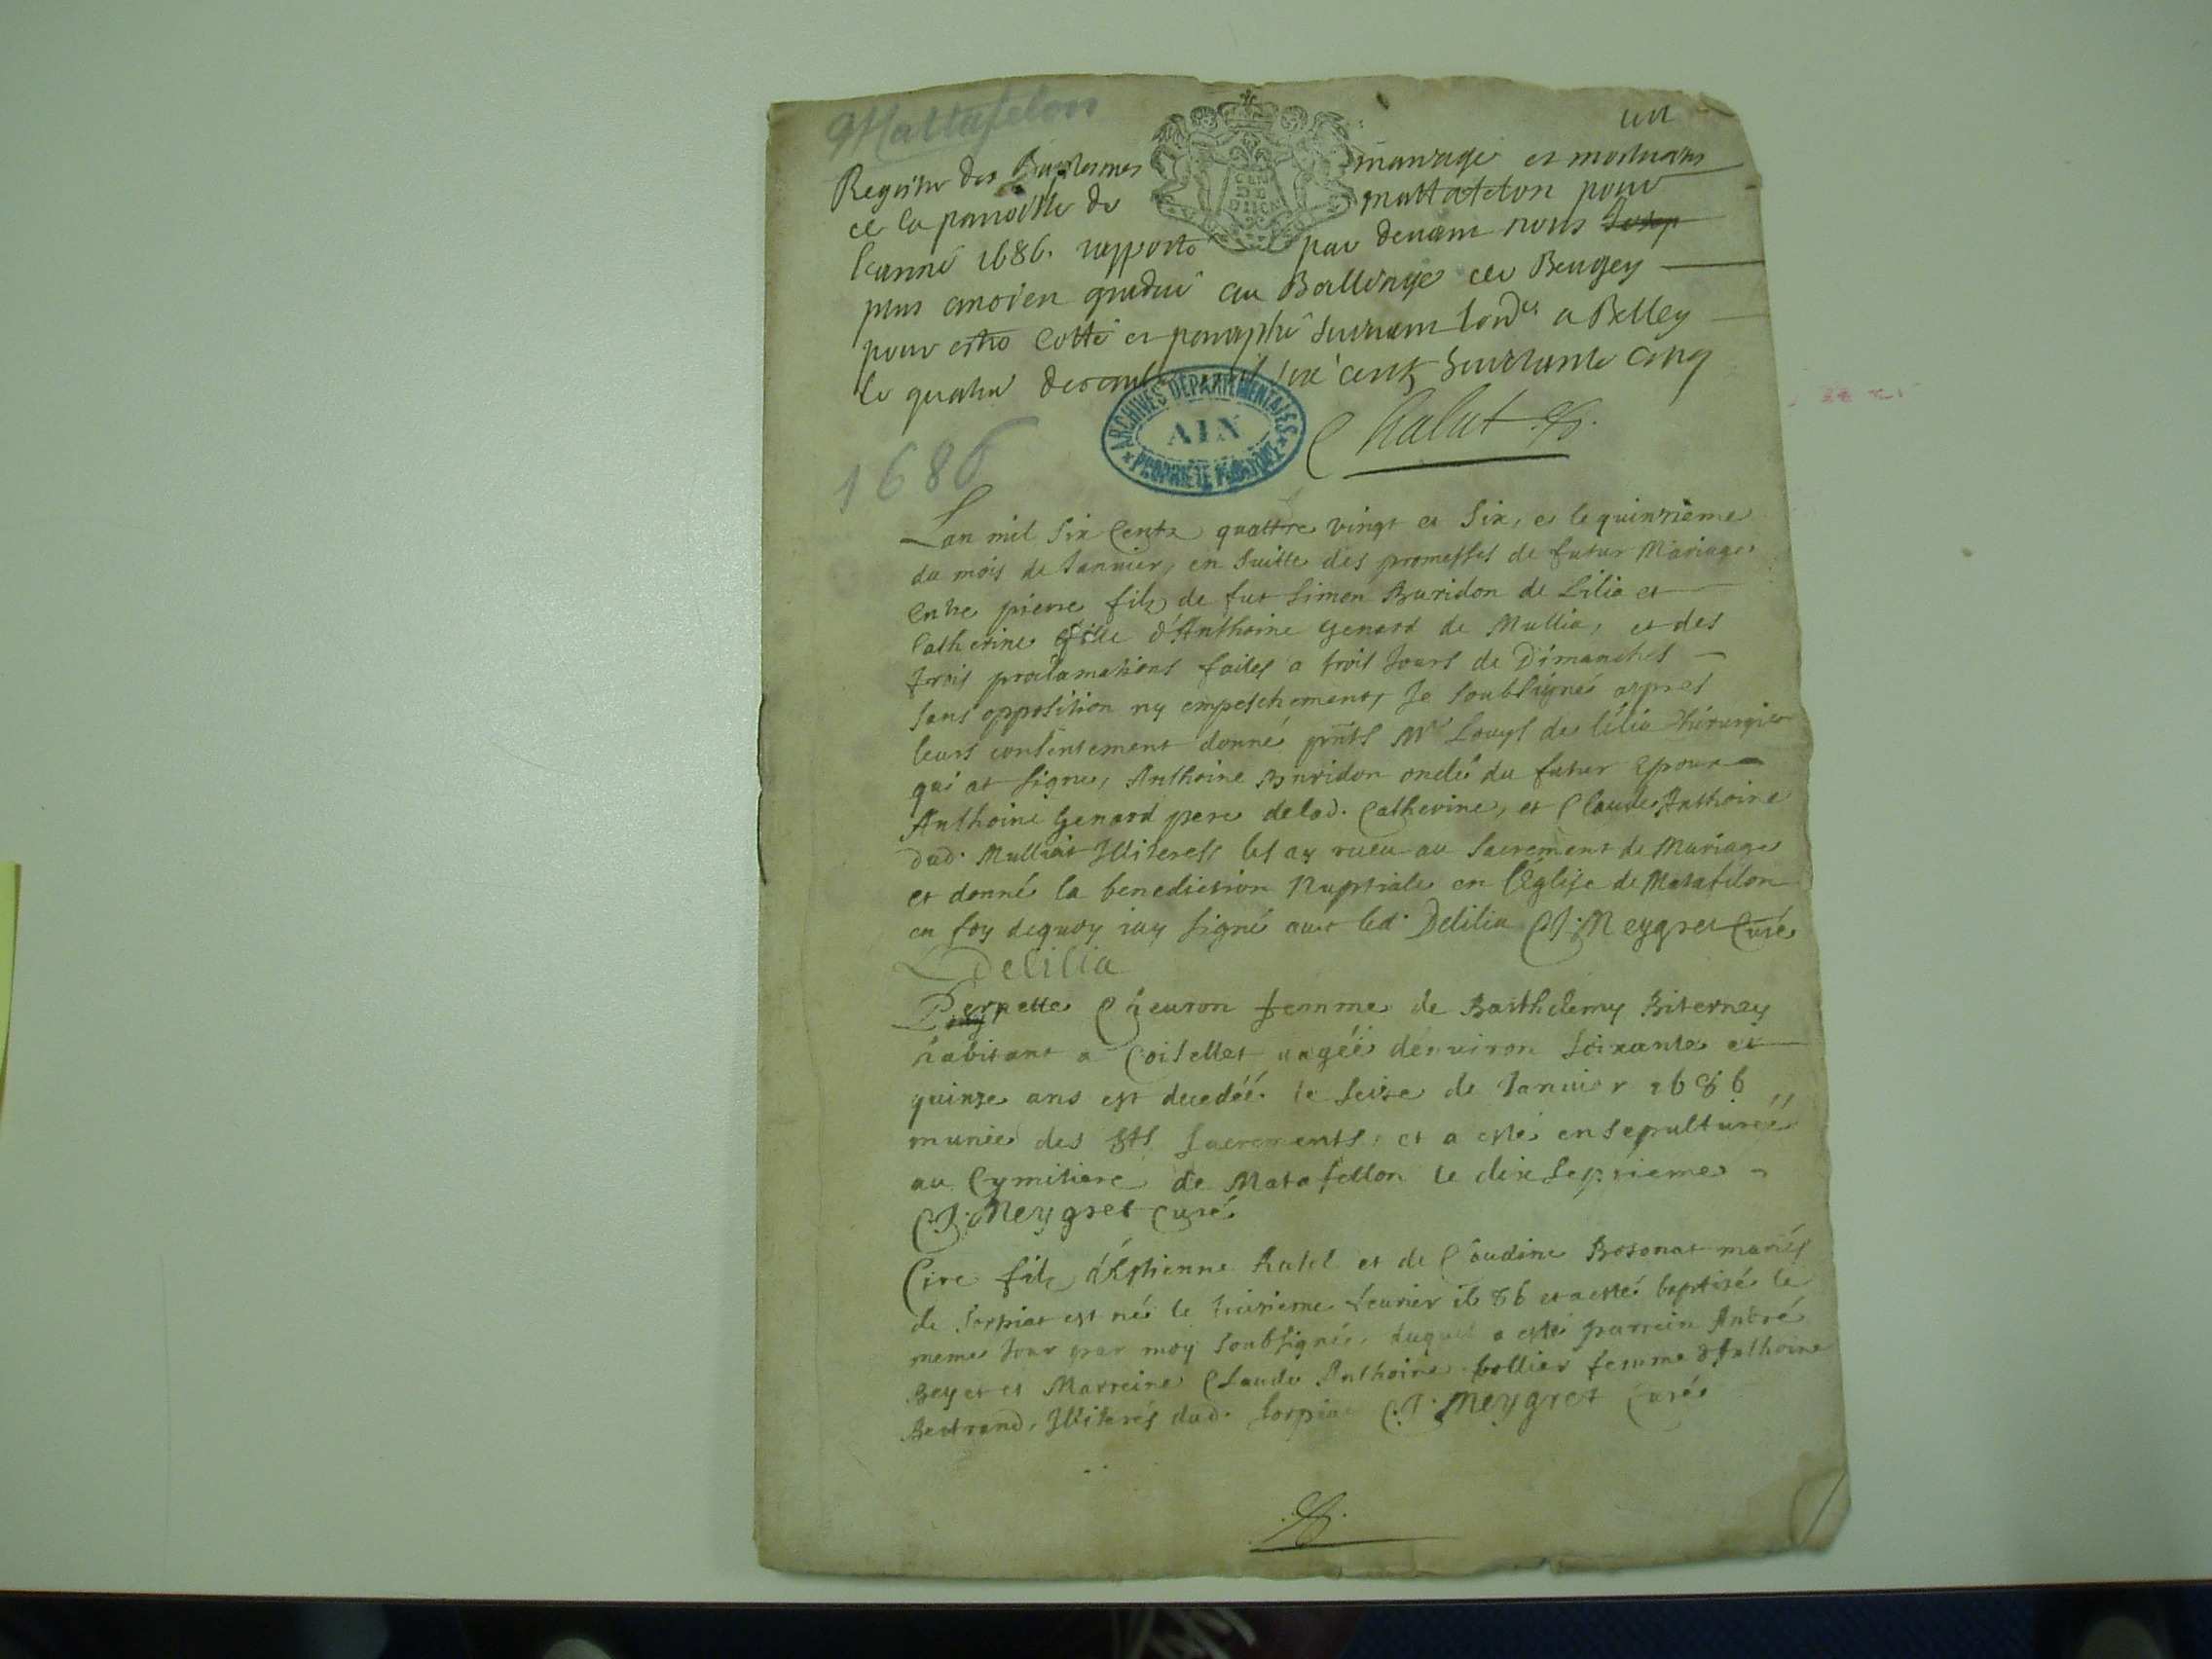 Mattafelon
un
Registre des Baptesmes mariage et mortuaires
de la parroisse de mattafelon pour
l'année 1686. rapporté par devant nous
plus ancien gradué au Balliage de Beugey
pour estre cotté et paraphé suivant lord.ce a Belley
le quatre six cents cinq
Chalut
ARCHIVES DEPARTEMENTALES
AIN
PROPRIETE PUBLIQUE
1686
Lan mil six Cents quattre vingt et six, e le quinzieme
du mois de Januier, en suitte des promesses de futur Mariage
Entre pierre filz de fut Simon Buridon de Lilia et
Catherine fille d'Anthoine Genard de Mullia, et des
trois proclamations faites a trois Jours de Dimanches
sans opposition ny empeschement, Je soubsigné aspres
leurs consentement donné pnts Mre Louys de lilia Chirurgien
qui at signe, Anthoine Buridon oncle du futur Epoux
Anthoine Genard pere delad. Catherine, et Claude Anthoine
dud. Mulliat Illiteress les ay receu au Sacrement de Mariage
et donné la benediction Nuptiale en l'Églize de Matafelon
en foy dequoy iay signé auec led. Delilia C.J. Neygret Curé
L Delilia
Pernette Cheuron femme de Barthelemy Biternay
habitant a Coisellet aagéé denuiron soixante et
quinze ans est decedéé le seize de Januier 1686
munie des Sts Sacrements, et a esté ensepulturéé
au Cymitiere de Matafellon le dix septieme
C.J. Neygret Curé
Cire filz d'Estienne Ratel et de Claudine Bosonat mariés
de Sorpiat est né le feurier 1686 et a esté baptizé le
meme Jour par moy soubsigné, duquel a esté parrein André
Beyet et Marreine Claude Anthoine bollier femme d'Anthoine
Bertrand, Illiterés dud. Sorpiat C.J. Neygret Curé